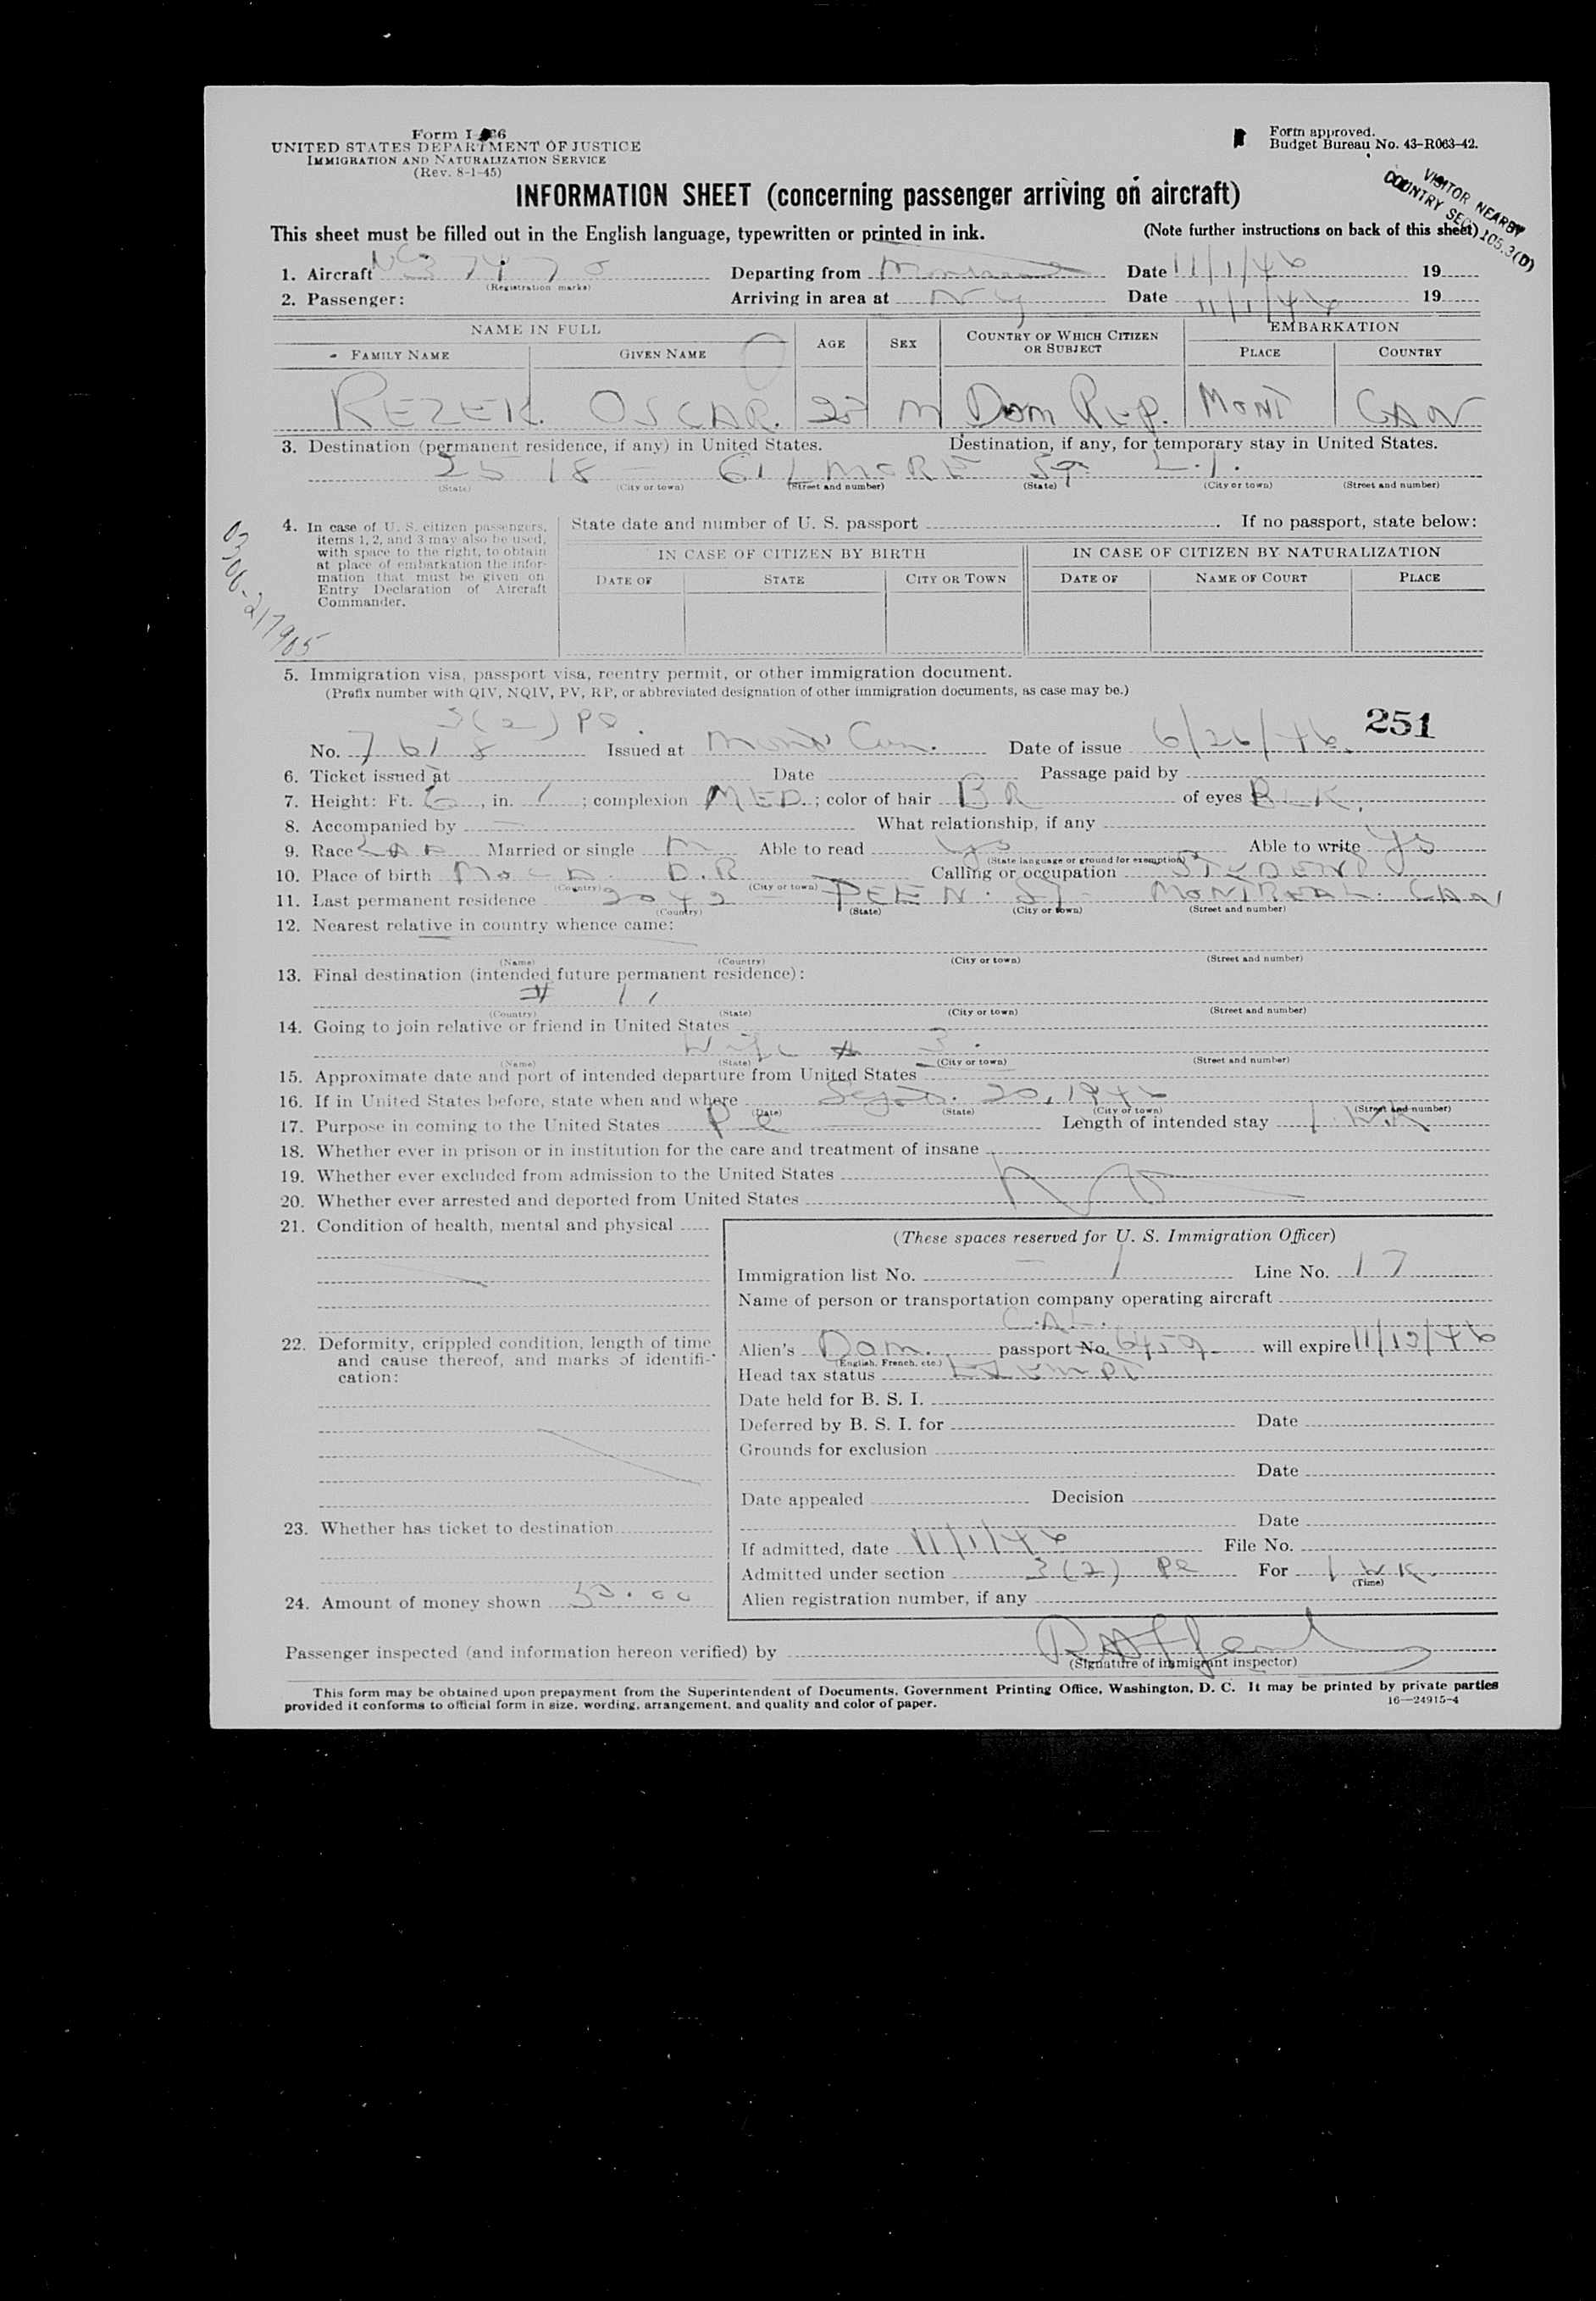 Form I-466
UNITED STATES DEPARTMENT OF JUSTICE
IMMIGRATION AND NATURALIZATION SERVICE
(Rev. 8-1-45)
Form approved.
Budget Bureau No. 43-R063-42.
VISITOR NEARBY
COUNTRY SEC. 105.3(D)
INFORMATION SHEET (concerning passenger arriving on aircraft)
This sheet must be filled out in the English language, typewritten or printed in ink. (Note further instructions on back of this sheet)
1. Aircraft Departing from Montreal Date 11/1/46 19
(Registration marks)
2. Passenger: Arriving in area at N Y Date 11/1/46 19
NAME IN FULL AGE SEX COUNTRY OF WHICH CITIZEN OR SUBJECT EMBARKATION
FAMILY NAME GIVEN NAME PLACE COUNTRY
REZEK. OSCAR. M Dom Rep. MONT CAN
3. Destination (permanent residence, if any) in United States. Destination, if any, for temporary stay in United States.
2518 - GILMORE ST L.I.
(State) (City or town) (Street and number) (State) (City or town) (Street and number)
4. In case of U. S. citizen passengers, items 1, 2, and 3 may also be used, with space to the right, to obtain at place of embarkation the information that must be given on Entry Declaration of Aircraft Commander.
State date and number of U. S. passport If no passport, state below:
IN CASE OF CITIZEN BY BIRTH IN CASE OF CITIZEN BY NATURALIZATION
DATE OF STATE CITY OR TOWN DATE OF NAME OF COURT PLACE
0300-217905
5. Immigration visa, passport visa, reentry permit, or other immigration document.
(Prefix number with QIV, NQIV, PV, RP, or abbreviated designation of other immigration documents, as case may be.)
3(2) PL 251
No. 7618 Issued at Mont Can. Date of issue 6/26/46.
6. Ticket issued at Date Passage paid by
7. Height: Ft. 6, in. 1; complexion MED.; color of hair BR of eyes BLK.
8. Accompanied by What relationship, if any
9. Race Married or single M Able to read Yes Able to write Yes
(State language or ground for exemption)
10. Place of birth MOCA D.R Calling or occupation STUDENT
(Country) (City or town)
11. Last permanent residence 2042 - PEEL ST MONTREAL. CAN
(Country) (State) (City or town) (Street and number)
12. Nearest relative in country whence came:
(Name) (Country) (City or town) (Street and number)
13. Final destination (intended future permanent residence):
# 11
(Country) (State) (City or town) (Street and number)
14. Going to join relative or friend in United States
Wife # 3.
(Name) (State) (City or town) (Street and number)
15. Approximate date and port of intended departure from United States
16. If in United States before, state when and where Sept. 20, 1946
(Date) (State) (City or town) (Street and number)
17. Purpose in coming to the United States Pl Length of intended stay 1 WK
18. Whether ever in prison or in institution for the care and treatment of insane
19. Whether ever excluded from admission to the United States No
20. Whether ever arrested and deported from United States
21. Condition of health, mental and physical
(These spaces reserved for U. S. Immigration Officer)
Immigration list No. 1 Line No. 17
Name of person or transportation company operating aircraft
C.A.L.
22. Deformity, crippled condition, length of time and cause thereof, and marks of identification:
Alien's Dom. passport No. 6459 will expire 11/13/46
(English, French, etc.)
Head tax status EXEMPT
Date held for B. S. I.
Deferred by B. S. I. for Date
Grounds for exclusion
Date
Date appealed Decision
23. Whether has ticket to destination
Date
If admitted, date 11/1/46 File No.
Admitted under section 3(2) Pl For 1 WK.
(Time)
24. Amount of money shown 50.00
Alien registration number, if any
Passenger inspected (and information hereon verified) by
(Signature of immigrant inspector)
This form may be obtained upon prepayment from the Superintendent of Documents, Government Printing Office, Washington, D. C. It may be printed by private parties
provided it conforms to official form in size, wording, arrangement, and quality and color of paper. 16—24915-4